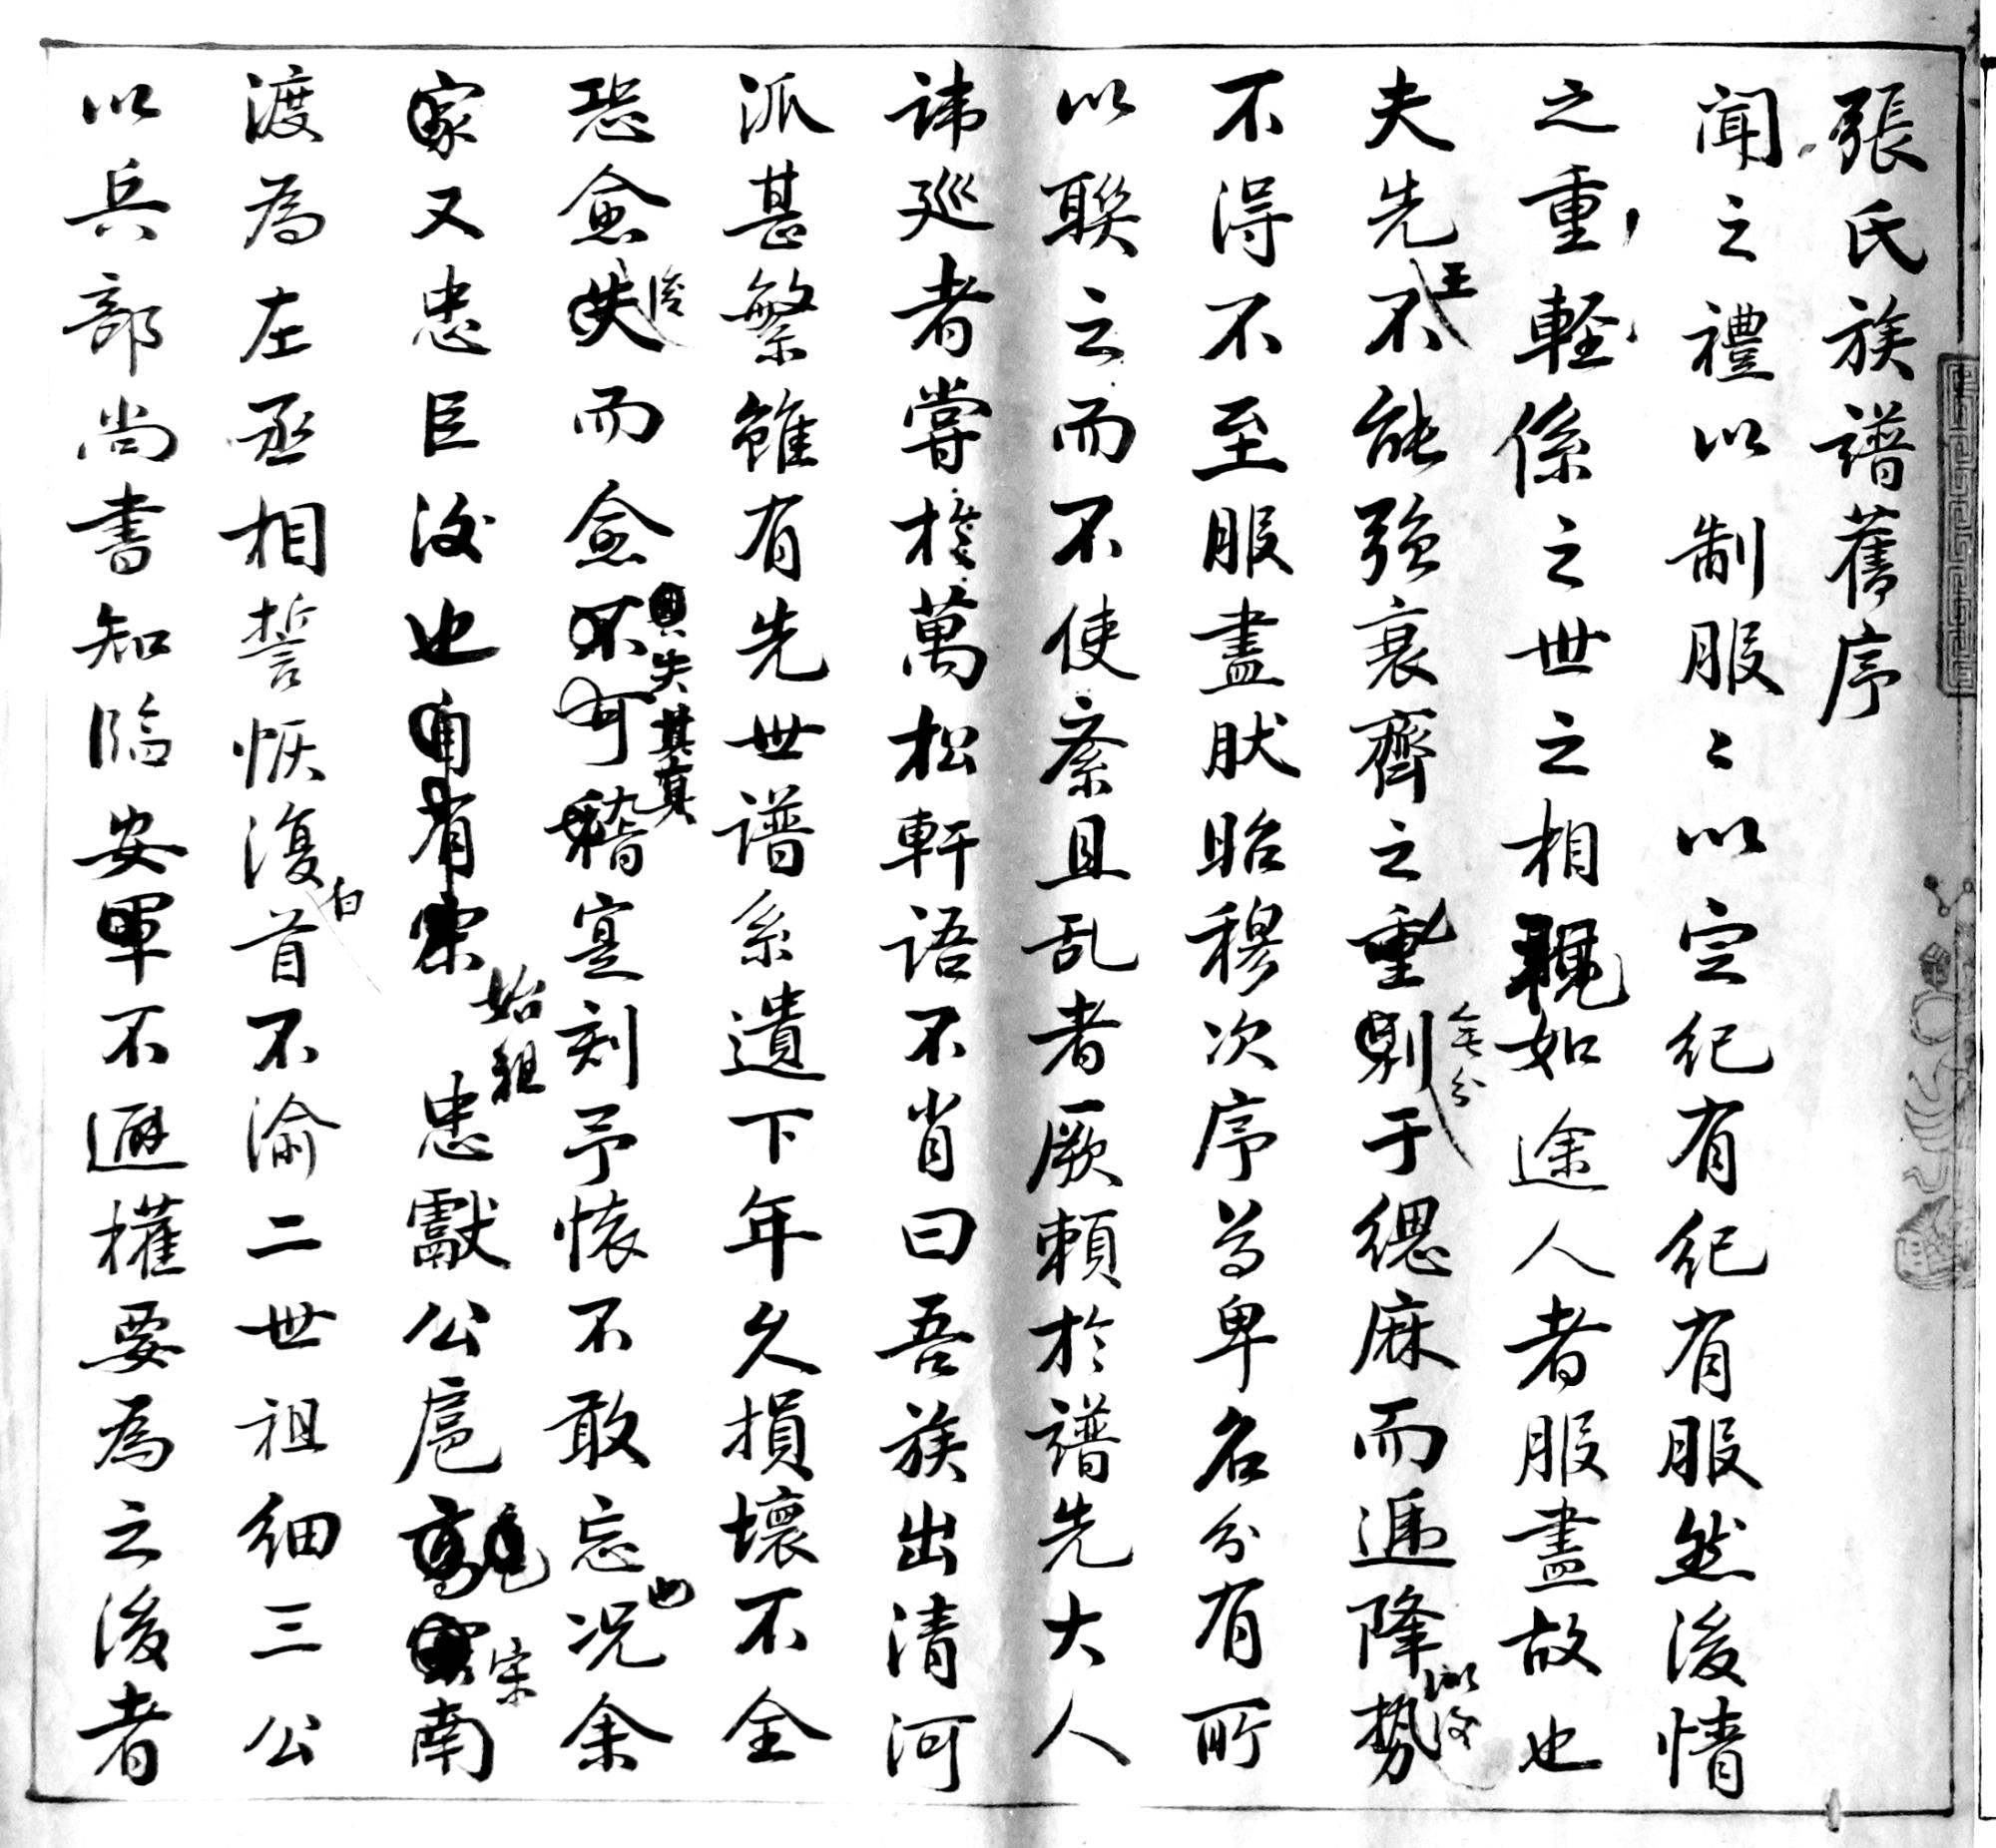 張氏族譜舊序
聞之禮以制服〻以定紀有紀有服然後情
之重軽係之世之相親如途人者服盡故也
夫先王不能強衰齊之重于緦麻而遞降勢
不得不至服盡肰昭穆次序尊卑名分有所
以聯之而不使紊且乱者厥賴於譜先大人
諱廵者嘗於萬松軒語不肖曰吾族出清河
派甚繁雖有先世譜系遺下年久損壞不全
恐愈後而愈失其真寔刻予懷不敢忘也况余
家又忠臣後也始祖忠獻公扈宋南
渡為左丞相誓恢復白首不渝二世祖細三公
以兵部尚書知臨安軍不避權要為之後者